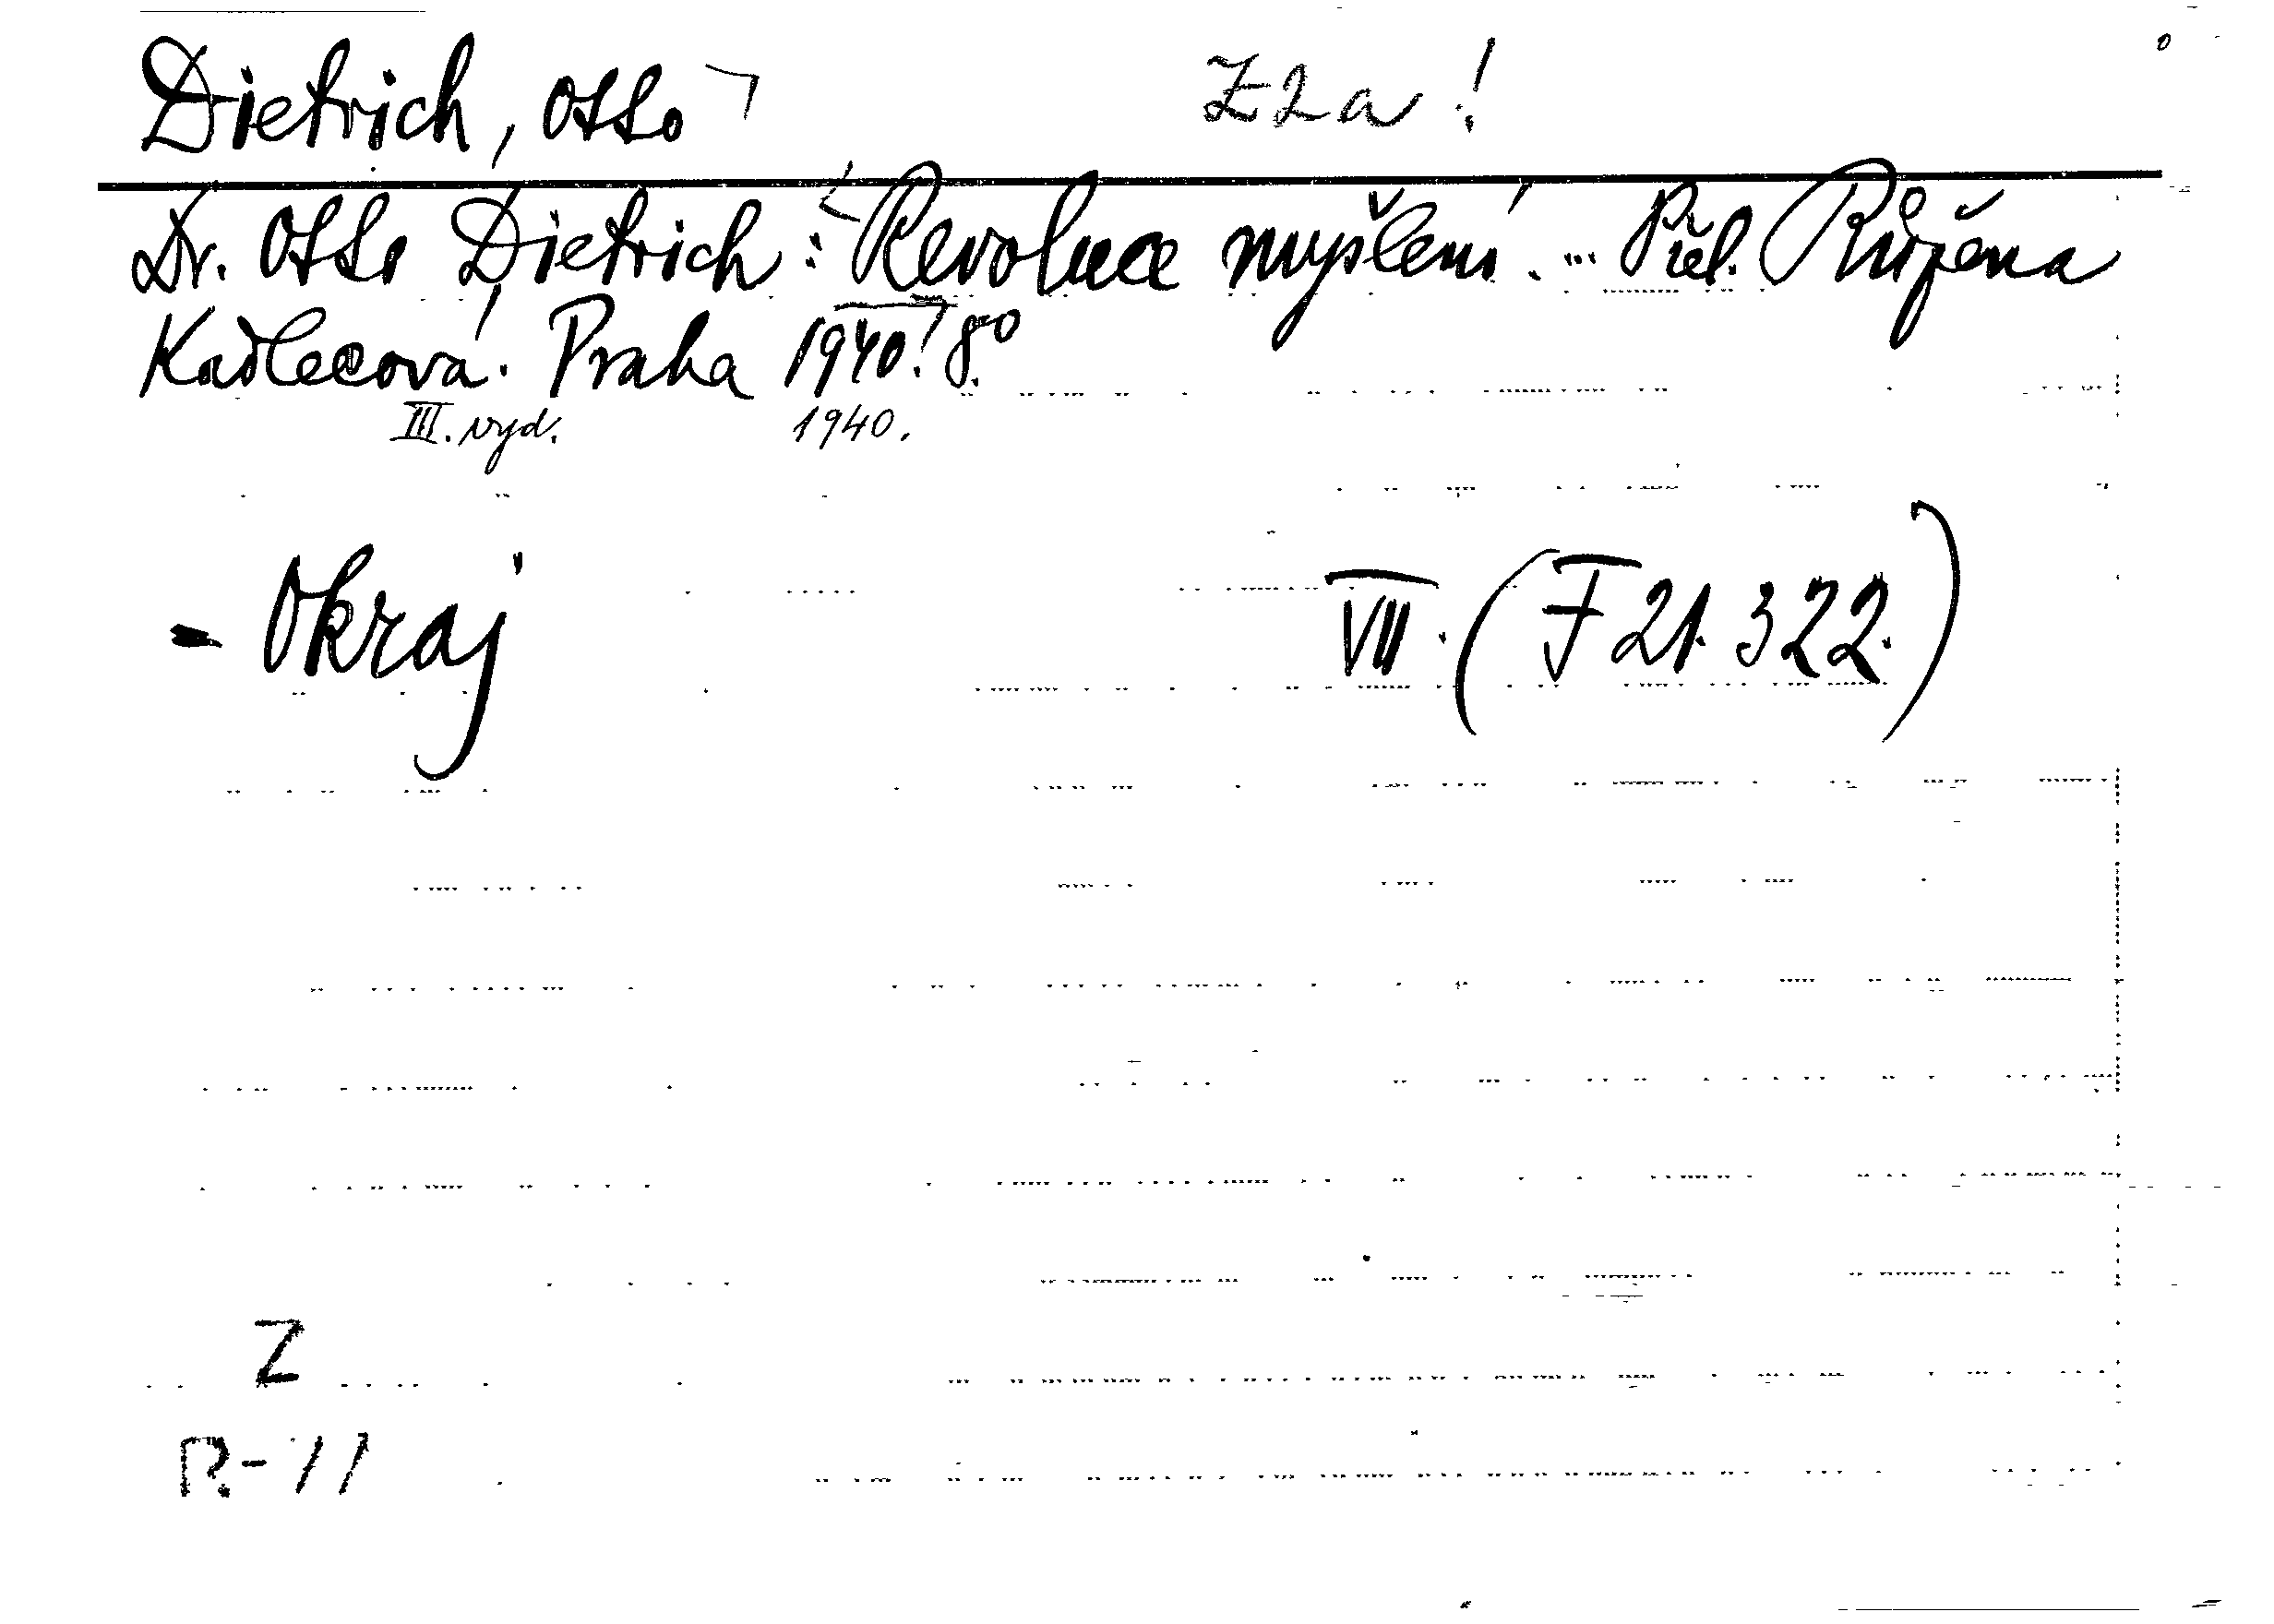 Dietrich, Otto Z2a!
Dr. Otto Dietrich: Revoluce myšlení. ... Přel. Růžena
Kadlecová. Praha 1940. 8°.
III. vyd. 1940.
- Okraj VII. (F 21.322.)
Z
R-11